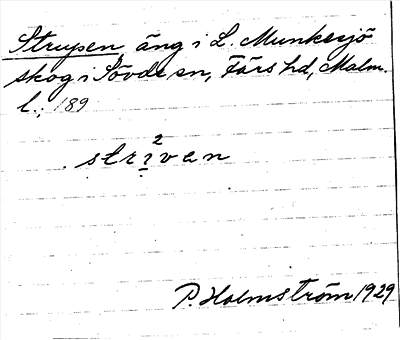 Strupen, äng i L. Munkesjö
skog i Sövde sn, Färs hd, Malm.
l., 189
2
striven
P. Holmström 1929